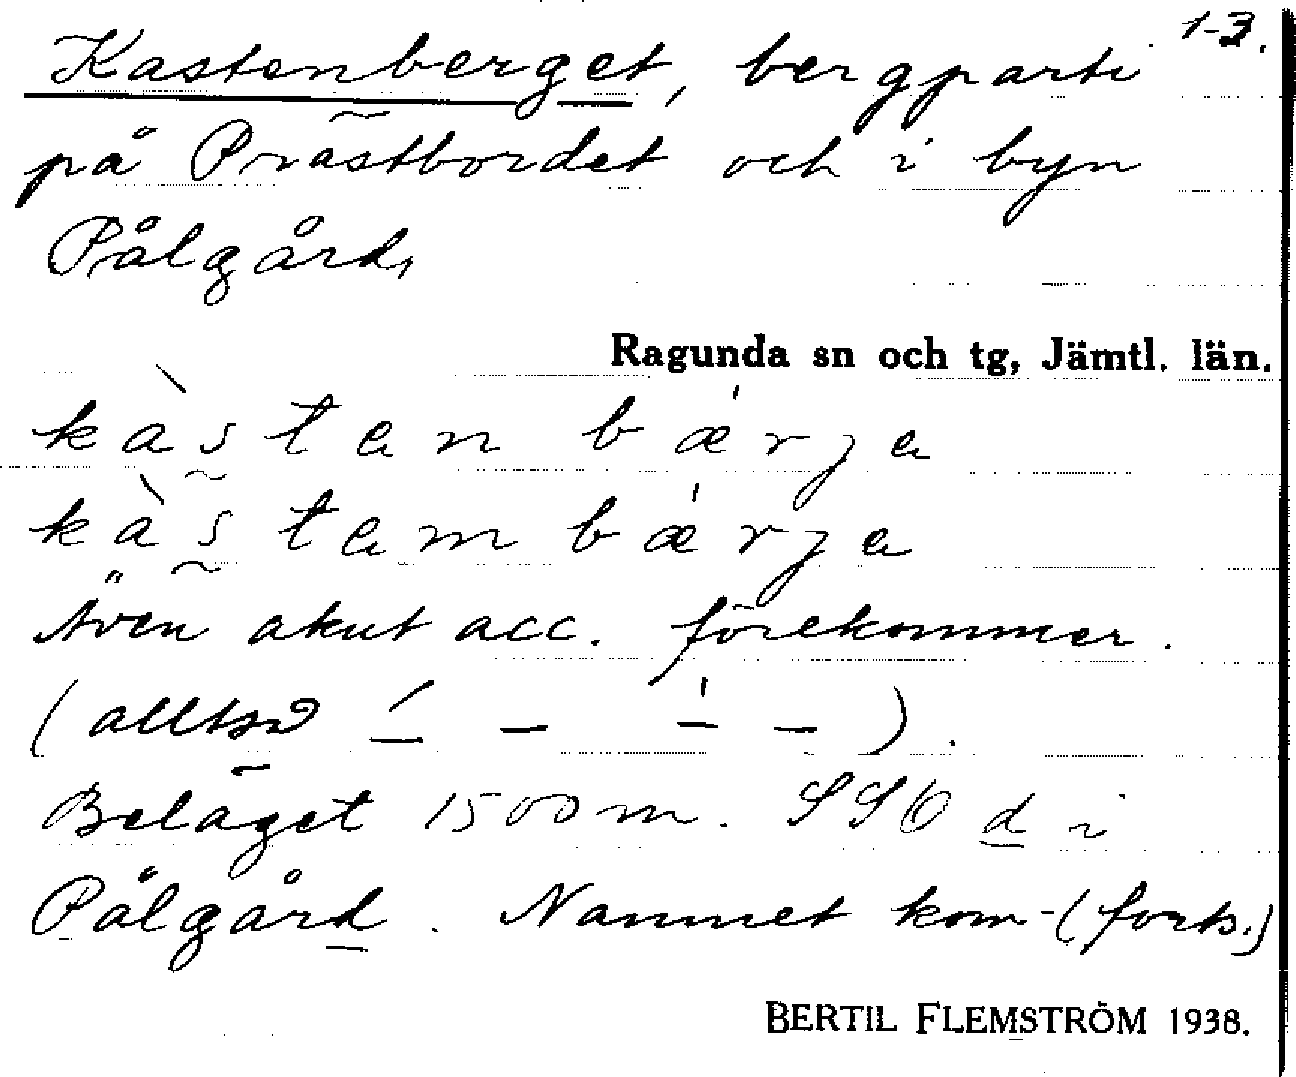 1-3.
Kastenberget, bergparti
på Prästbordet och i byn
Pålgård,
Ragunda sn och tg, Jämtl. län.
kàstən bǽrjə
kàstəm bǽrjə
Även akut acc. förekommer.
(alltså –́ – –́ –).
Beläget 1500 m. SSO d i
Pålgård. Namnet kom- (forts.)
BERTIL FLEMSTRÖM 1938.